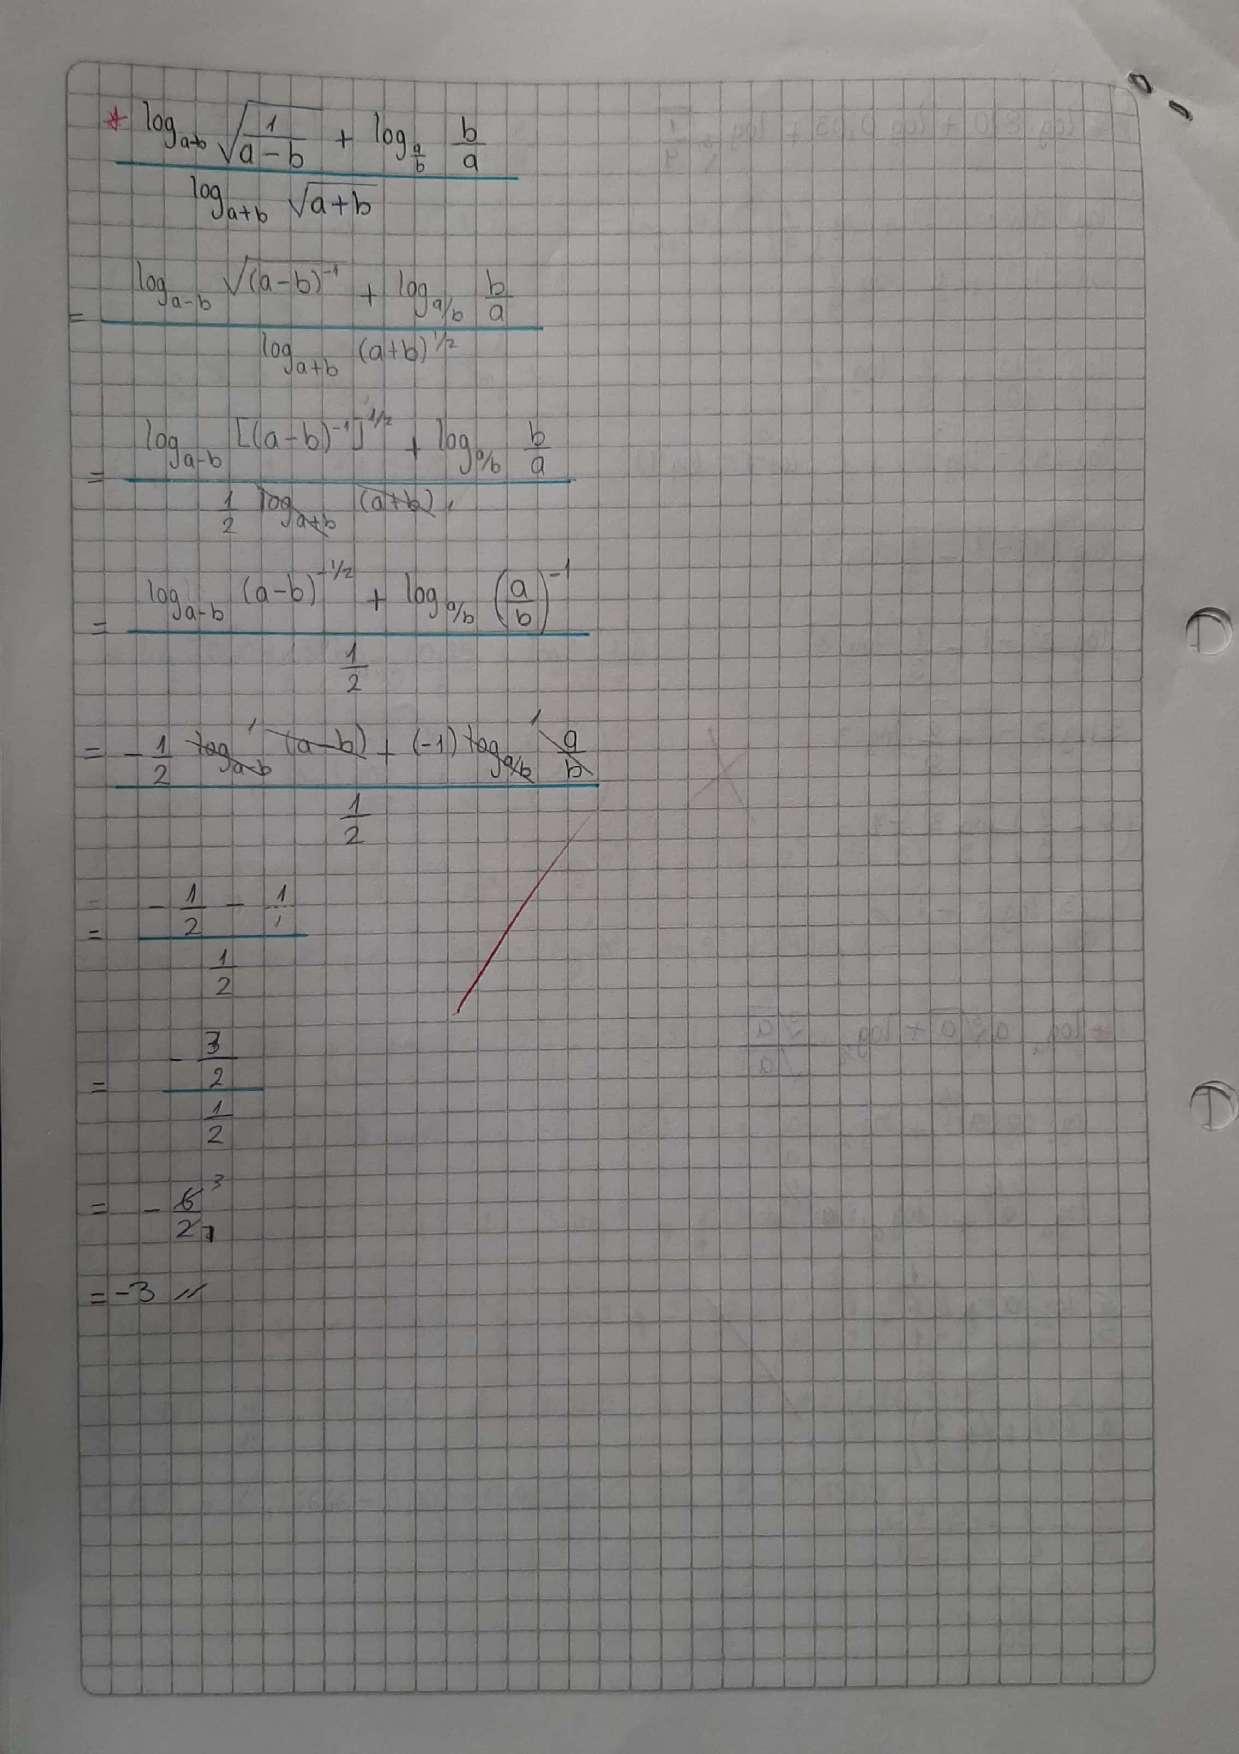 * log_{a-b} √(1/(a-b)) + log_{a/b} b/a
log_{a+b} √(a+b)
= log_{a-b} √((a-b)^{-1}) + log_{a/b} b/a
log_{a+b} (a+b)^{1/2}
= log_{a-b} [(a-b)^{-1}]^{1/2} + log_{a/b} b/a
1/2 log_{a+b} (a+b)
= log_{a-b} (a-b)^{-1/2} + log_{a/b} (a/b)^{-1}
1/2
= -1/2 log_{a-b} (a-b) + (-1) log_{a/b} a/b
1/2
= -1/2 - 1/1
1/2
= -3/2
1/2
= -6/2 3 1
= -3 //